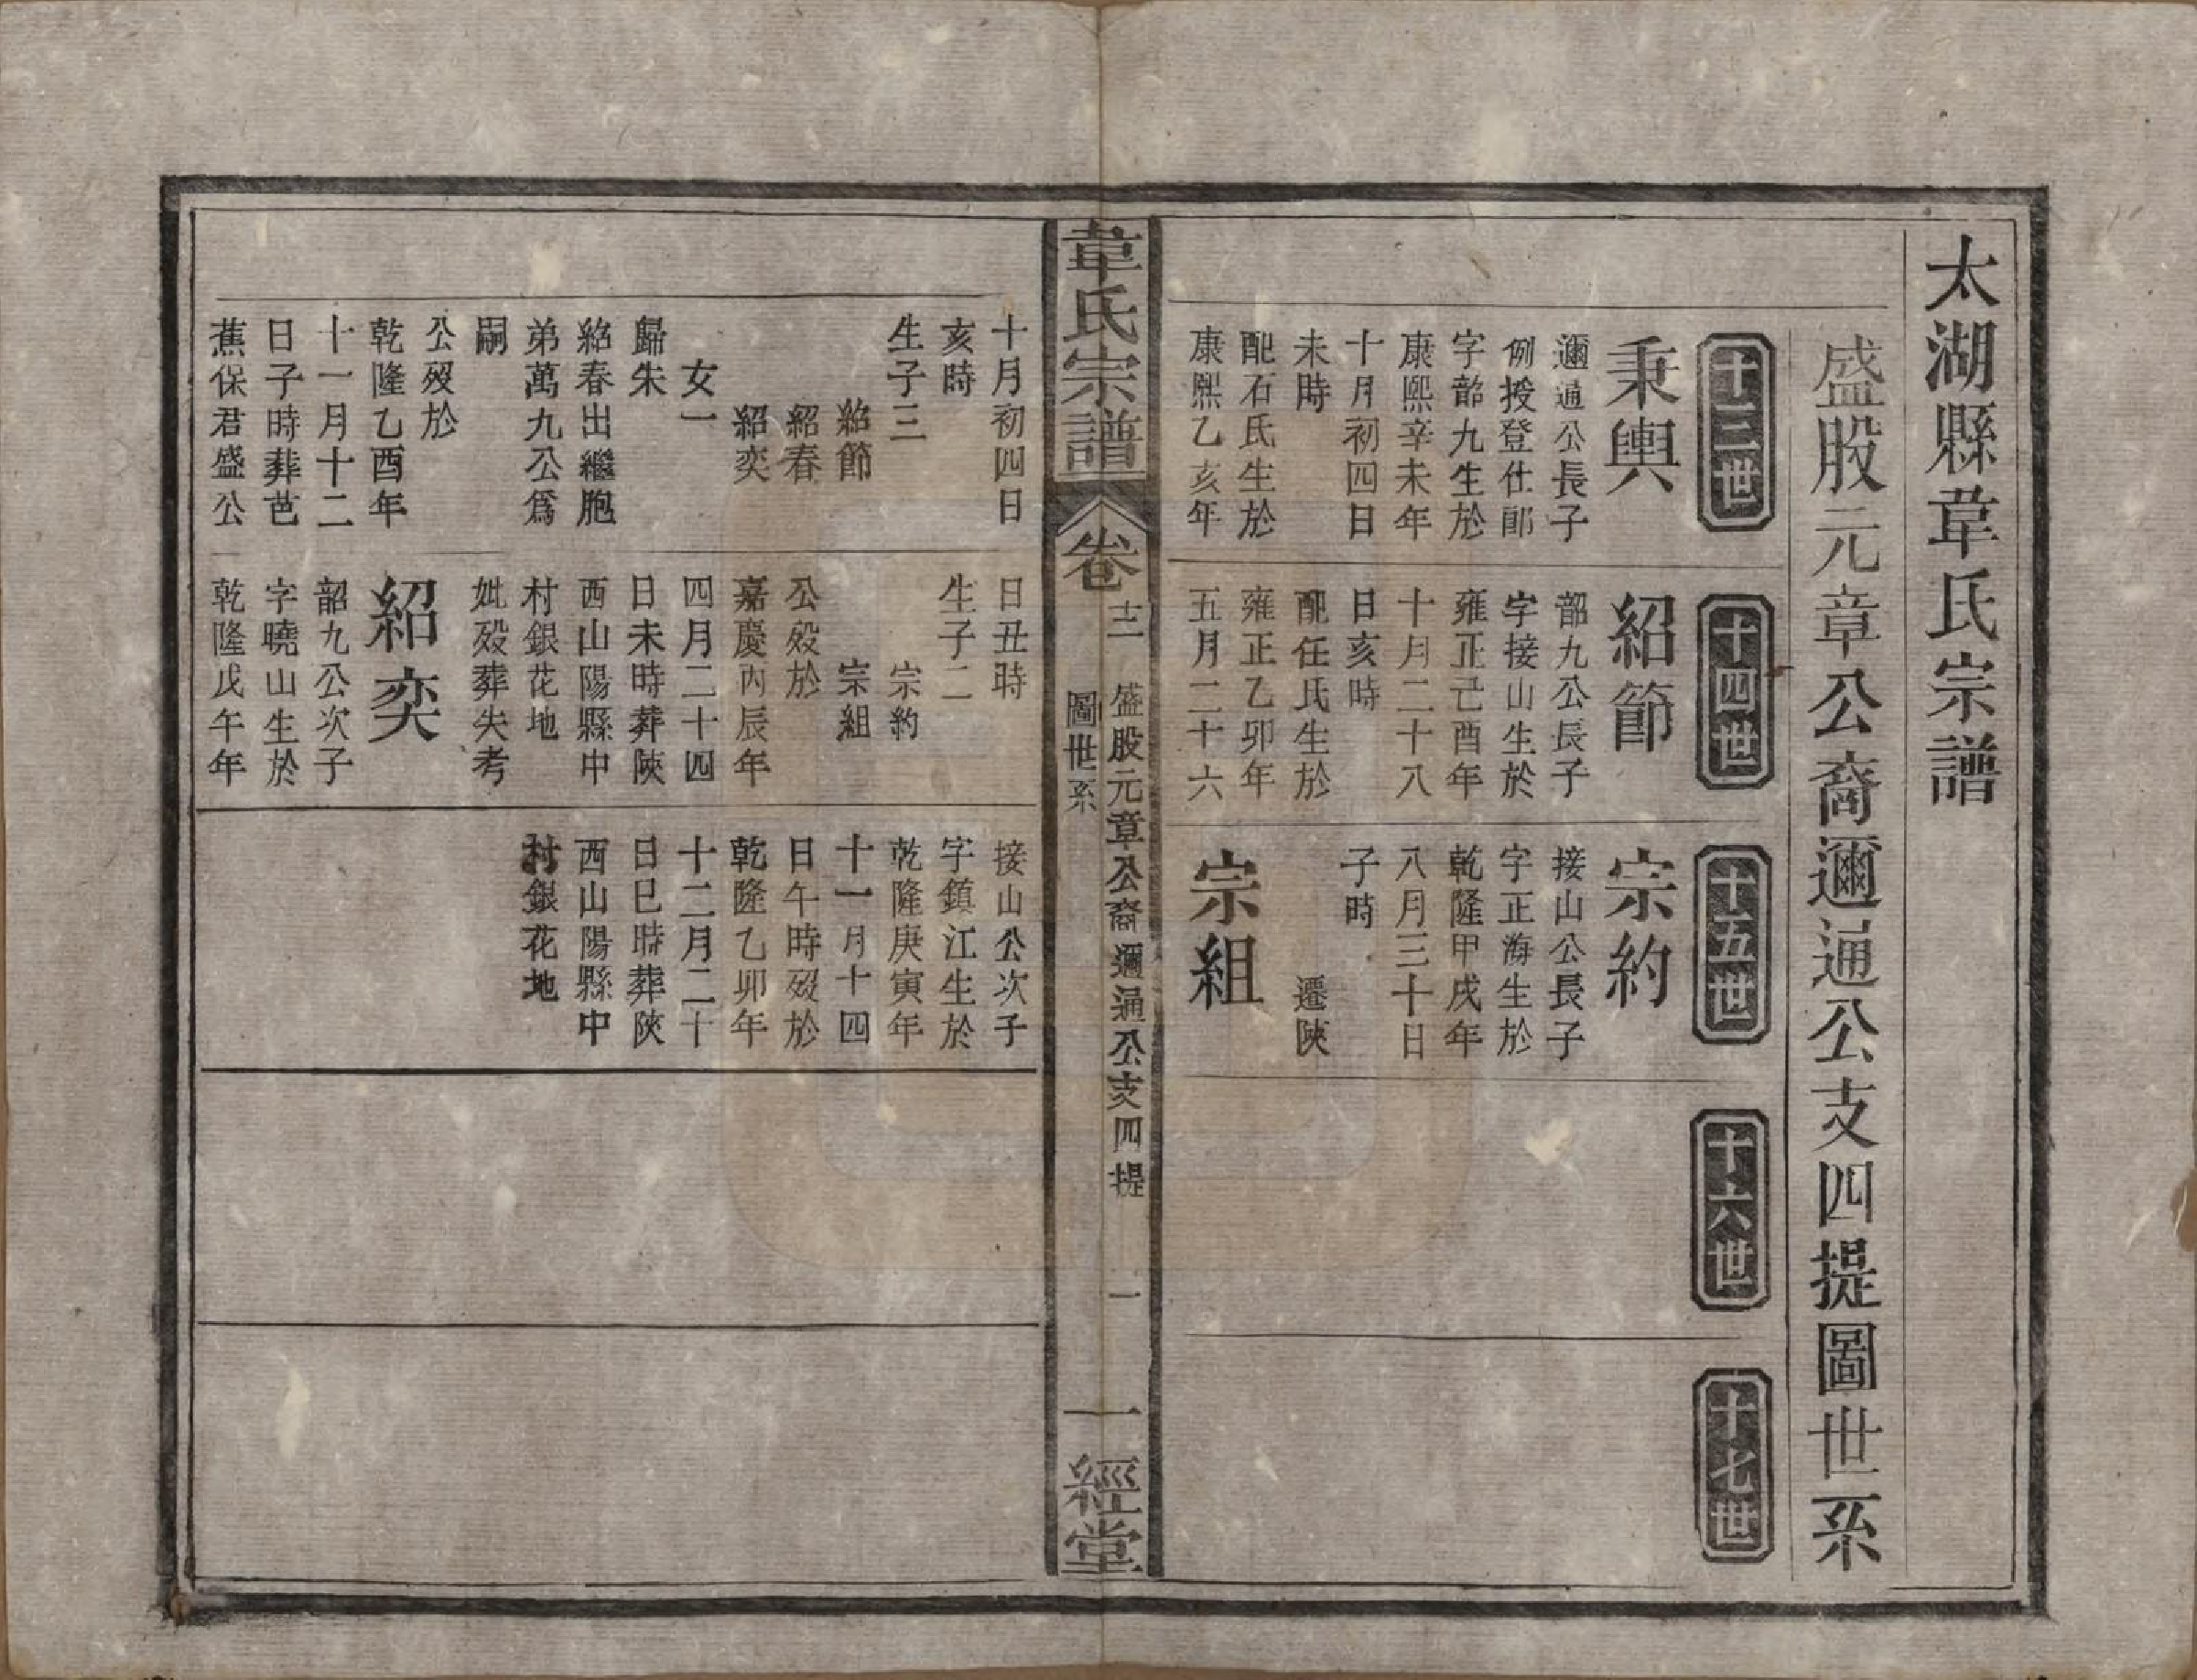 太湖縣韋氏宗譜
盛股元章公裔邇通公支四提圖世系
十三世
秉輿
邇通公長子
例授登仕郎
字韶九生於
康熙辛未年
十月初四日
未時
配石氏生於
康熙乙亥年
十四世
紹節
韶九公長子
字接山生於
雍正己酉年
十月二十八
日亥時
配任氏生於
雍正乙卯年
五月二十六
十五世
宗約
接山公長子
字正海生於
乾隆甲戌年
八月三十日
子時
遷陝
宗組
十六世
十七世
韋氏宗譜
卷
十二
盛股元章公裔邇通公支四提
圖世系
一
一經堂
十月初四日
亥時
生子三
紹節
紹春
紹奕
女一
歸朱
紹春出繼胞
弟萬九公爲
嗣
公歿於
乾隆乙酉年
十一月十二
日子時葬芭
蕉保君盛公
日丑時
生子二
宗約
宗組
公歿於
嘉慶丙辰年
四月二十四
日未時葬陝
西山陽縣中
村銀花地
妣歿葬失考
紹奕
韶九公次子
字曉山生於
乾隆戊午年
接山公次子
字鎮江生於
乾隆庚寅年
十一月十四
日午時歿於
乾隆乙卯年
十二月二十
日巳時葬陝
西山陽縣中
村銀花地